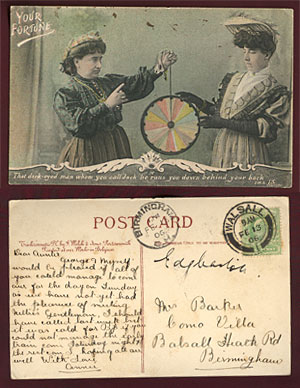 YOUR
FORTUNE
That dark-eyed man whom you call Jack he runs you down behind your back
POST CARD
BIRMINGHAM
WALSALL
FE 13
Dear Auntie
George & Myself
would be pleased if all of
you could manage to come
over for the day on Sunday
as we have not yet had
the pleasure of meeting
Nellies Gentleman, I should
have called last week but
it was cold for
could not manage the
from come Saturday night
the rest come Hoping all are
well With Love
Annie
Edgbaston
Mrs Barker
Como Villa
Balsall Heath Rd
Birmingham